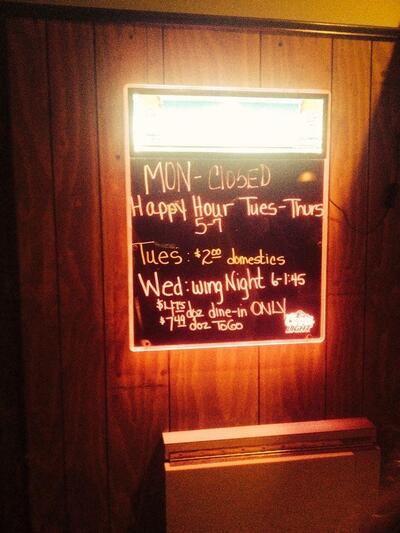 MON - CLOSED
Happy Hour Tues-Thurs
5-7
Tues: $2.00 domestics
Wed: wing Night 6-1:45
$4.75 doz dine-in ONLY
$7.49 doz ToGo